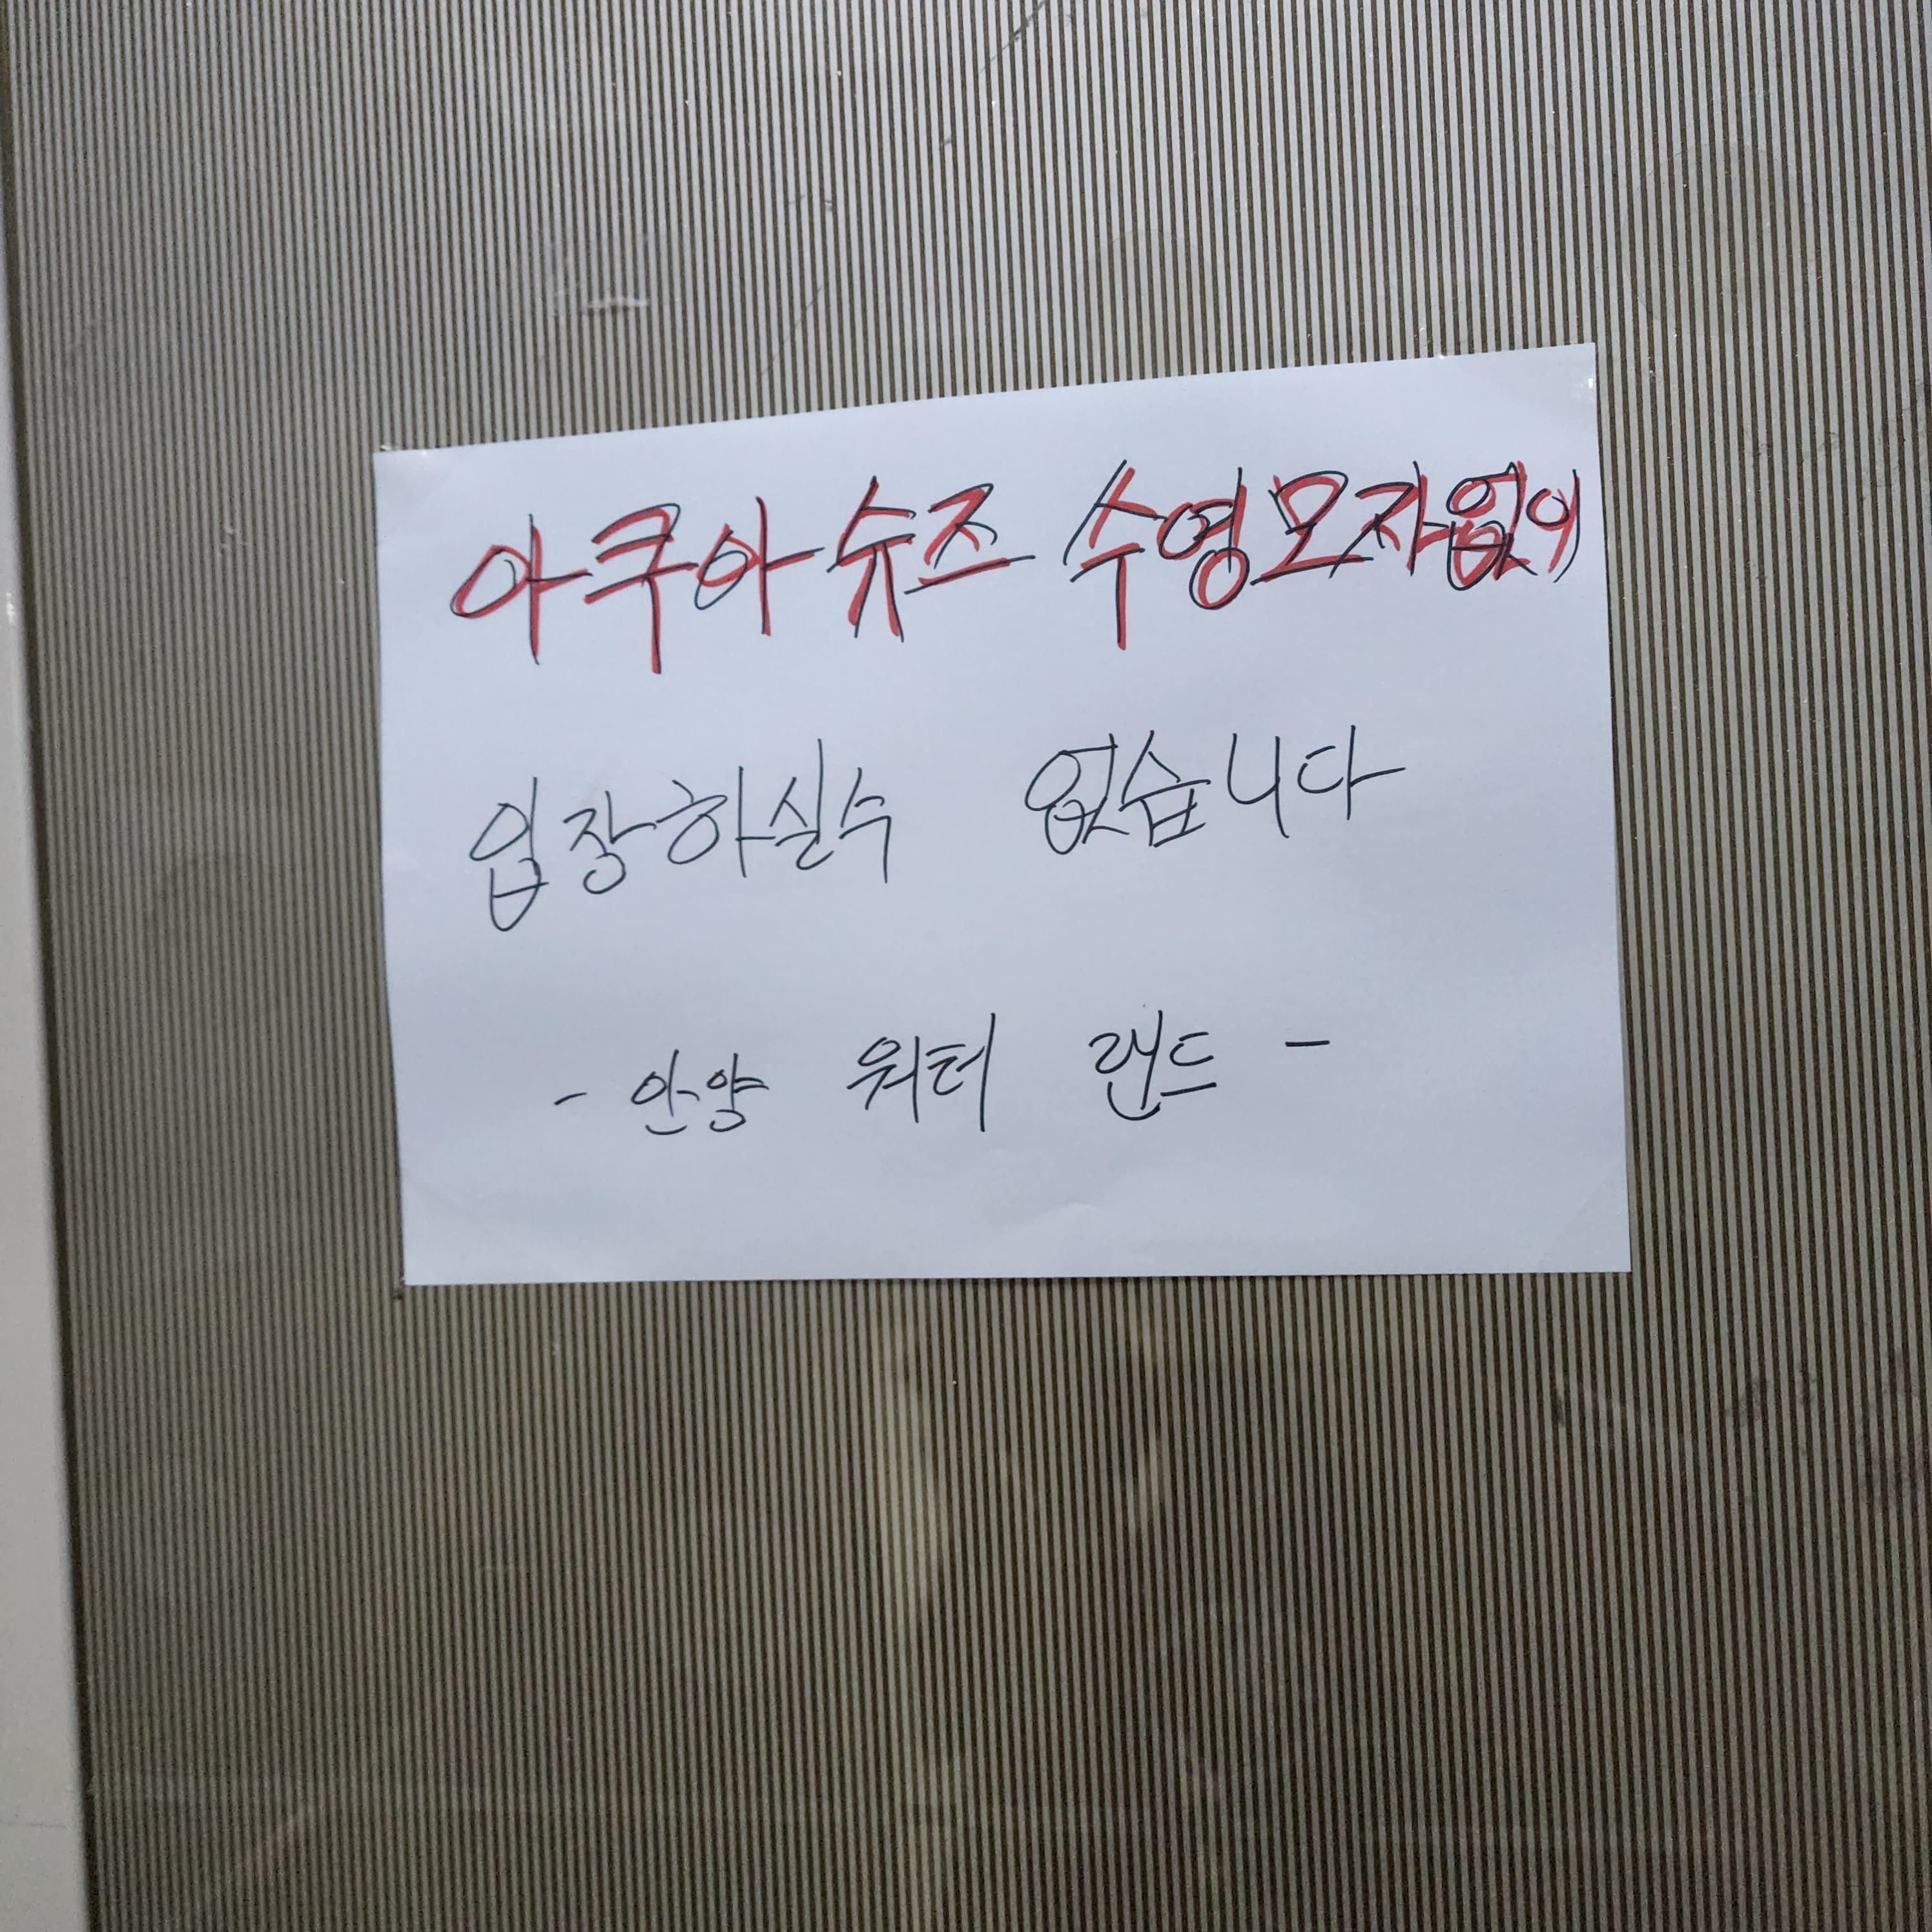 아쿠아슈즈 수영모자없이
입장하실수 없습니다
- 안양 워터 랜드 -